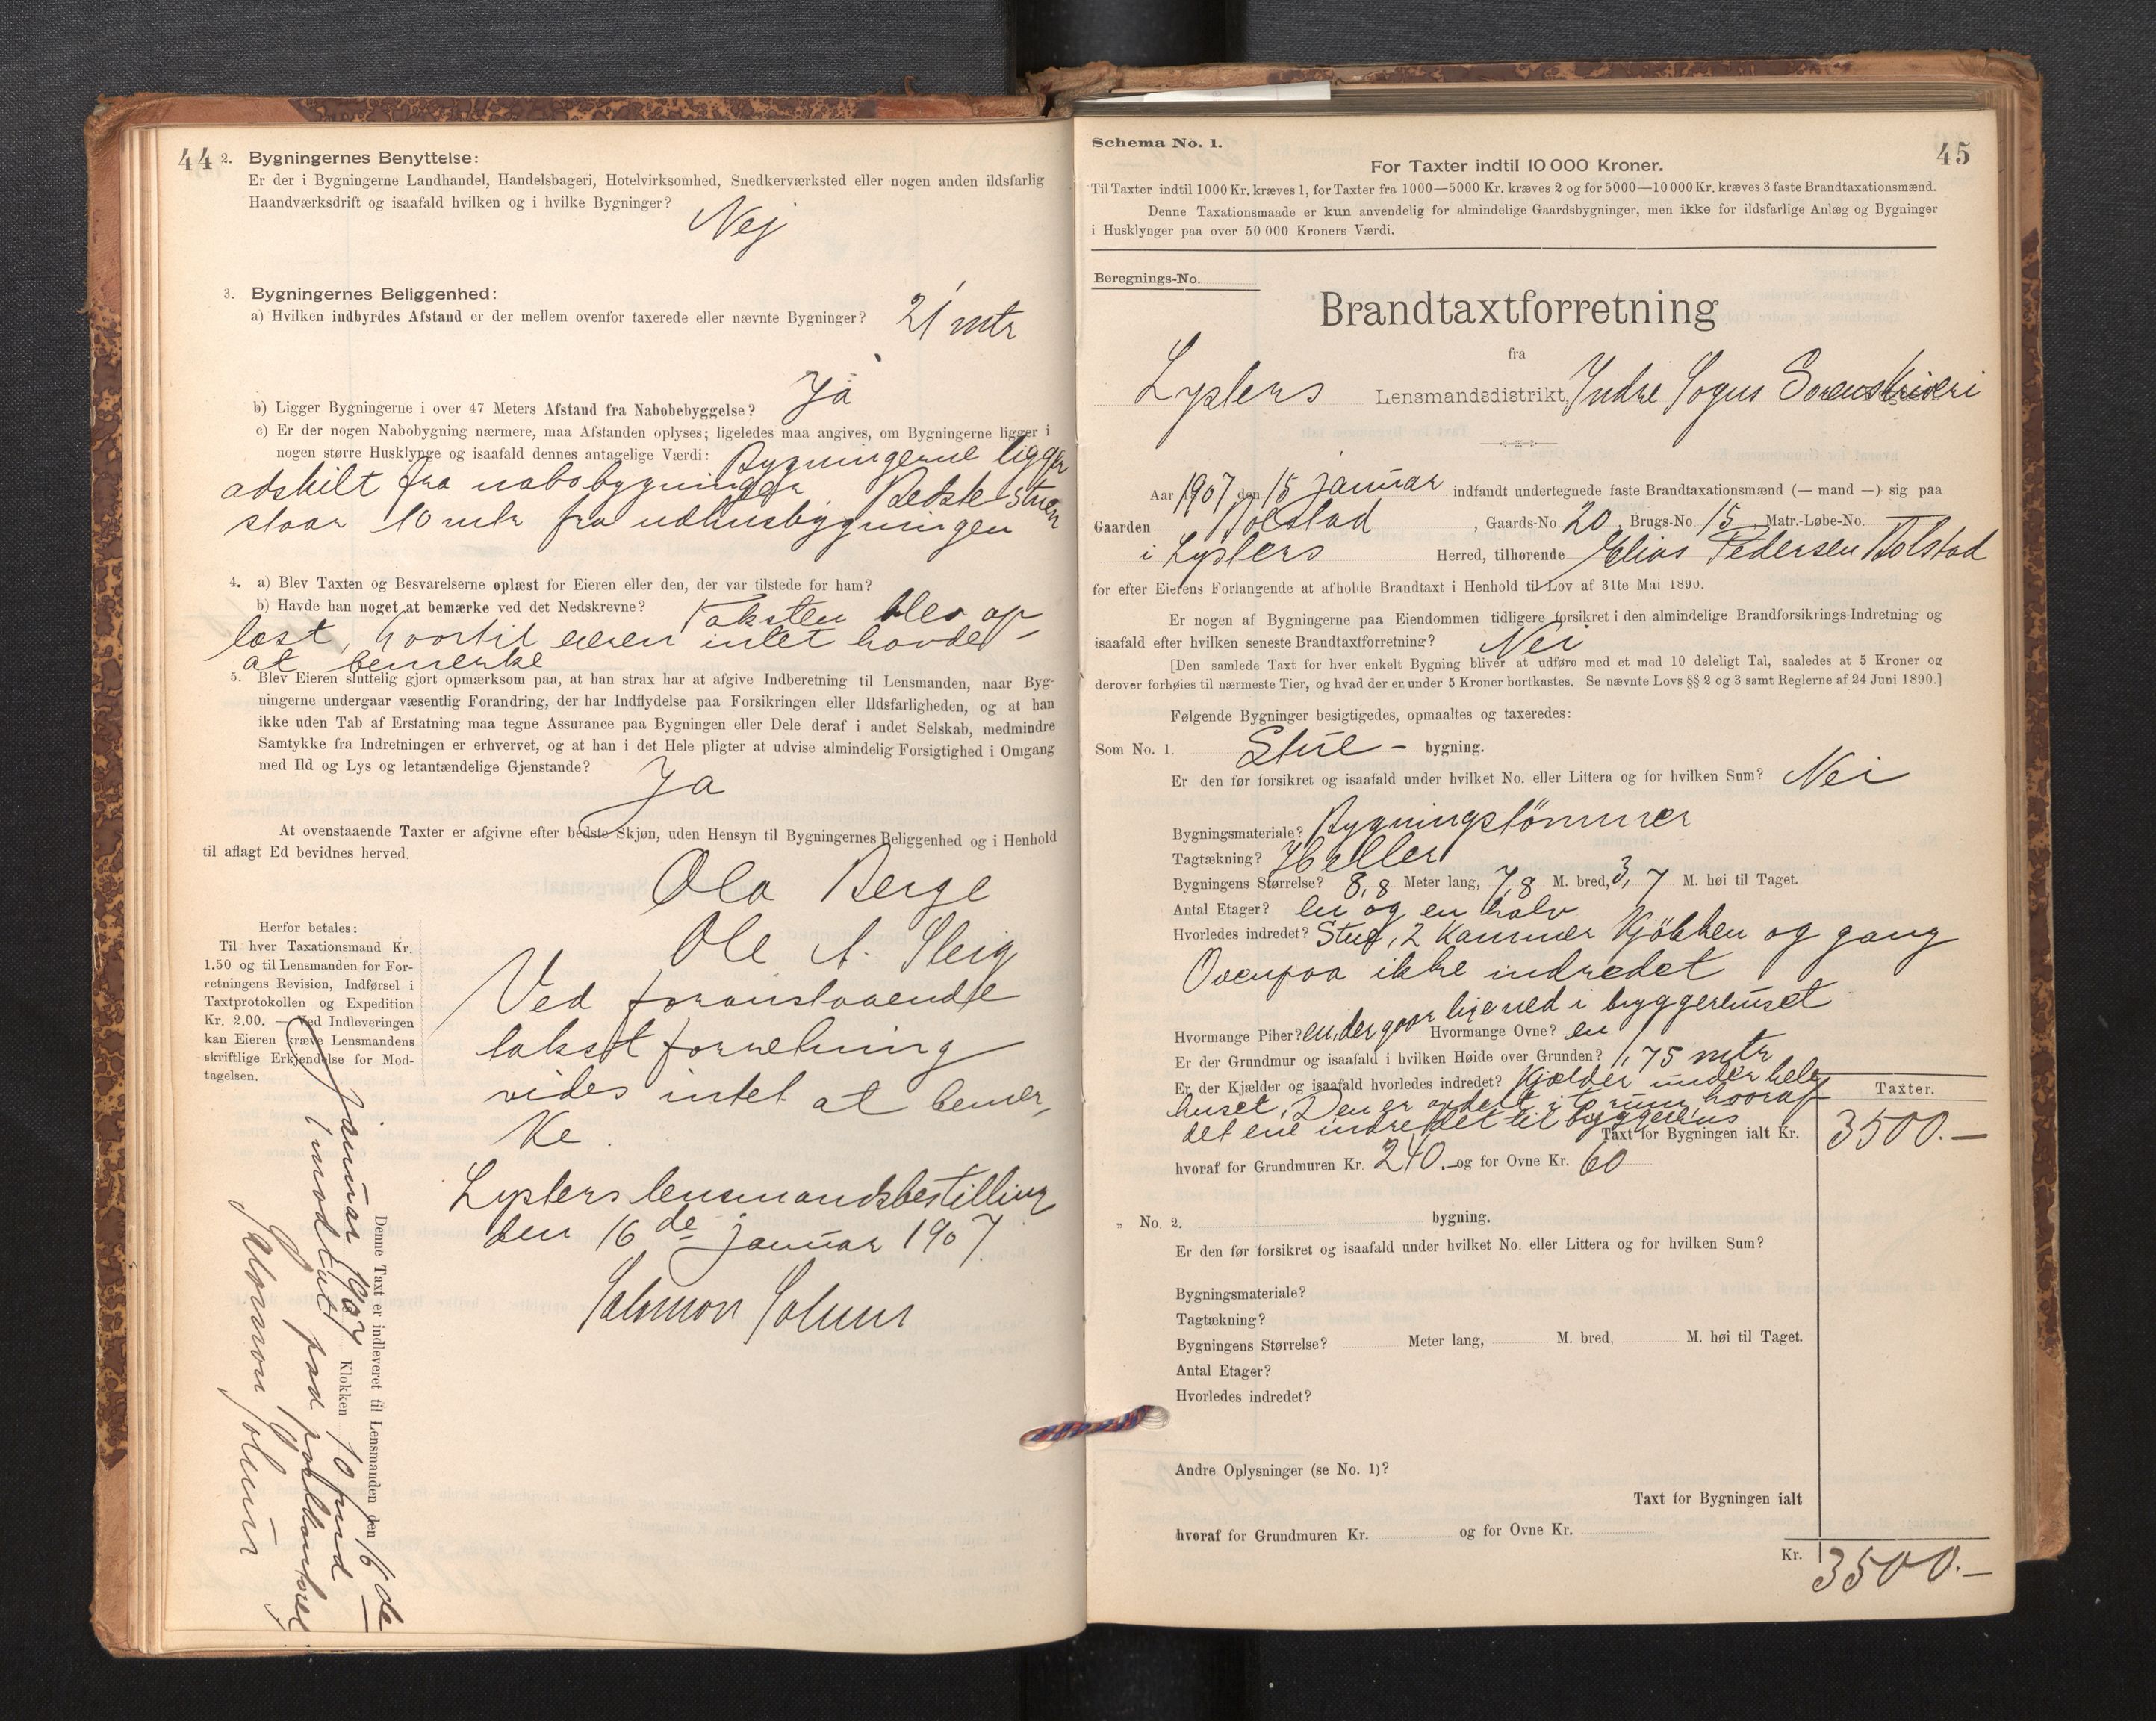 44
2. Bygningernes Benyttelse:
Er der i Bygningerne Landhandel, Handelsbageri, Hotelvirksomhed, Snedkerværksted eller nogen anden ildsfarlig
Haandværksdrift og isaafald hvilken og i hvilke Bygninger?
Nej
3. Bygningernes Beliggenhed:
a) Hvilken indbyrdes Afstand er der mellem ovenfor taxerede eller nævnte Bygninger? 21 mtr
b) Ligger Bygningerne i over 47 Meters Afstand fra Nabobebyggelse? Ja
c) Er der nogen Nabobygning nærmere, maa Afstanden oplyses; ligeledes maa angives, om Bygningerne ligger i
nogen større Husklynge og isaafald dennes antagelige Værdi: Bygningerne ligger
adskilt fra nabobygninger. Bedste Stuen
staar 10 mtr fra udhusbygningen
4. a) Blev Taxten og Besvarelserne oplæst for Eieren eller den, der var tilstede for ham?
b) Havde han noget at bemærke ved det Nedskrevne? Taksten blev op
læst, hvortil eieren intet havde
at bemerke
5. Blev Eieren sluttelig gjort opmærksom paa, at han strax har at afgive Indberetning til Lensmanden, naar Byg-
ningerne undergaar væsentlig Forandring, der har Indflydelse paa Forsikringen eller Ildsfarligheden, og at han
ikke uden Tab af Erstatning maa tegne Assurance paa Bygningen eller Dele deraf i andet Selskab, medmindre
Samtykke fra Indretningen er erhvervet, og at han i det Hele pligter at udvise almindelig Forsigtighed i Omgang
med Ild og Lys og letantændelige Gjenstande?
Ja
At ovenstaaende Taxter er afgivne efter bedste Skjøn, uden Hensyn til Bygningernes Beliggenhed og i Henhold
til aflagt Ed bevidnes herved.
Ola Berge
Ole A. Steig
Herfor betales:
Til hver Taxationsmand Kr.
1.50 og til Lensmanden for For-
retningens Revision, Indførsel i
Taxtprotokollen og Expedition
Kr. 2.00. — Ved Indleveringen
kan Eieren kræve Lensmandens
skriftlige Erkjendelse for Mod-
tagelsen.
Ved foranstaaende
takstforretning
vides intet at bemer,
ke.
Lysters lensmandsbestilling
den 16de januar 1907.
Salomon Solum
Denne Taxt er indleveret til Lensmanden den 16de
januar 1907 Klokken 10 fmd
imodtat paa postkontoret
Salomon Solum
45
Schema No. 1.
For Taxter indtil 10 000 Kroner.
Til Taxter indtil 1000 Kr. kræves 1, for Taxter fra 1000—5000 Kr. kræves 2 og for 5000—10 000 Kr. kræves 3 faste Brandtaxationsmænd.
Denne Taxationsmaade er kun anvendelig for almindelige Gaardsbygninger, men ikke for ildsfarlige Anlæg og Bygninger
i Husklynger paa over 50 000 Kroners Værdi.
Beregnings-No.
Brandtaxtforretning
fra
Lysters Lensmandsdistrikt, Indre Sogns Sorenskriveri
Aar 1907 den 15 januar indfandt undertegnede faste Brandtaxationsmænd (— mand —) sig paa
Gaarden Bolstad , Gaards-No. 20, Brugs-No. 15, Matr.-Løbe-No.
i Lysters Herred, tilhørende Elias Pedersen Bolstad
for efter Eierens Forlangende at afholde Brandtaxt i Henhold til Lov af 31te Mai 1890.
Er nogen af Bygningerne paa Eiendommen tidligere forsikret i den almindelige Brandforsikrings-Indretning og
isaafald efter hvilken seneste Brandtaxtforretning? Nei
[Den samlede Taxt for hver enkelt Bygning bliver at udføre med et med 10 deleligt Tal, saaledes at 5 Kroner og
derover forhøies til nærmeste Tier, og hvad der er under 5 Kroner bortkastes. Se nævnte Lovs §§ 2 og 3 samt Reglerne af 24 Juni 1890.]
Følgende Bygninger besigtigedes, opmaaltes og taxeredes:
Som No. 1. Stue - bygning.
Er den før forsikret og isaafald under hvilket No. eller Littera og for hvilken Sum? Nei
Bygningsmateriale? Bygningstömmer
Tagtækning? Heller
Bygningens Størrelse? 8,8 Meter lang, 7,8 M. bred, 3,7 M. høi til Taget.
Antal Etager? en og en halv
Hvorledes indredet? Stue, 2 Kammer Kjökken og gang
Ovenpaa ikke indredet
Hvormange Piber? en, der gaar lige ned i bryggerhuset Hvormange Ovne? en
Er der Grundmur og isaafald i hvilken Høide over Grunden? 1,75 mtr
Er der Kjælder og isaafald hvorledes indredet? Kjælder under hele
huset. Den er avdelt i to rum, hvoraf
det ene indredet til bryggerhus
Taxter.
Taxt for Bygningen ialt Kr. 3500.—
hvoraf for Grundmuren Kr. 240.- og for Ovne Kr. 60
„ No. 2. bygning.
Er den før forsikret og isaafald under hvilket No. eller Littera og for hvilken Sum?
Bygningsmateriale?
Tagtækning?
Bygningens Størrelse? Meter lang, M. bred, M. høi til Taget.
Antal Etager?
Hvorledes indredet?
Andre Oplysninger (se No. 1)?
Taxt for Bygningen ialt
hvoraf for Grundmuren Kr. og for Ovne Kr.
Kr. 3500.—